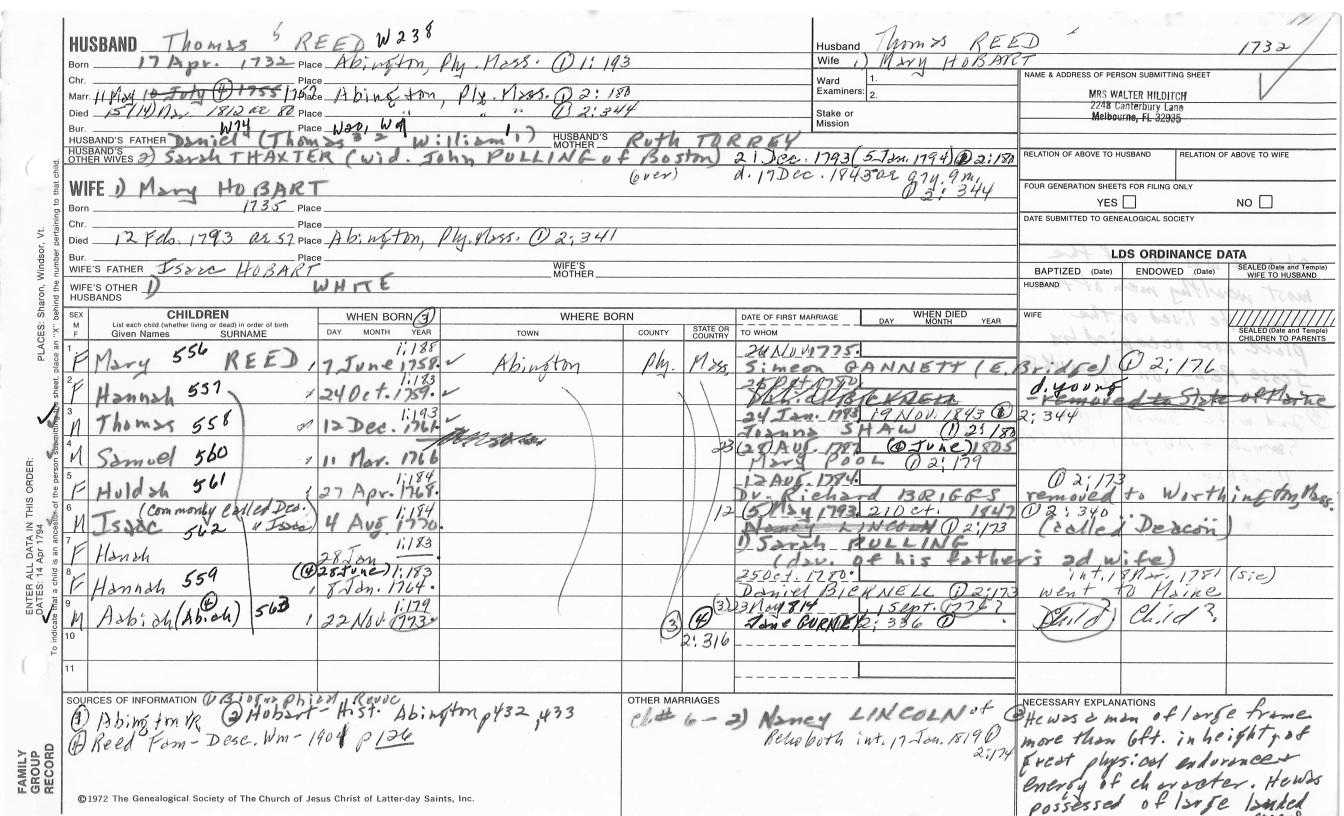 HUSBAND Thomas 5 REED W238
Born 17 Apr. 1732 Place Abington, Ply. Mass. ① 1:193
Chr. Place
Marr. 11 May 10 July ④ 1755 1757 Place Abington, Ply. Mass. ① 2:180
Died 15 (14) Mar. 1812 ae 80 Place " " " ① 2:344
Bur. W74 Place W20, W9
HUSBAND'S FATHER Daniel (Thomas 3 2 William 1,) HUSBAND'S MOTHER Ruth TORREY
HUSBAND'S OTHER WIVES 2) Sarah THAXTER (wid. John PULLING of Boston) 21 Dec. 1793 (5 Jan. 1794) ① 2:180
(over) d. 17 Dec. 1843 ae 97y, 9m,
① 2:344
Husband Thomas REED 1732
Wife 1) Mary HOBART
Ward Examiners: 1.
2.
Stake or Mission
NAME & ADDRESS OF PERSON SUBMITTING SHEET
MRS WALTER HILDITCH
2248 Canterbury Lane
Melbourne, FL 32935
RELATION OF ABOVE TO HUSBAND RELATION OF ABOVE TO WIFE
FOUR GENERATION SHEETS FOR FILING ONLY
YES NO
DATE SUBMITTED TO GENEALOGICAL SOCIETY
WIFE 1) Mary HOBART
Born 1735 Place
Chr. Place
Died 12 Feb. 1793 ae 57 Place Abington, Ply. Mass. ① 2:341
Bur. Place
WIFE'S FATHER Isaac HOBART WIFE'S MOTHER
WIFE'S OTHER HUSBANDS 1) WHITE
LDS ORDINANCE DATA
BAPTIZED (Date) ENDOWED (Date) SEALED (Date and Temple) WIFE TO HUSBAND
HUSBAND
WIFE
SEALED (Date and Temple) CHILDREN TO PARENTS
SEX M F CHILDREN
List each child (whether living or dead) in order of birth
Given Names SURNAME
WHEN BORN ③
DAY MONTH YEAR
WHERE BORN
TOWN COUNTY STATE OR COUNTRY
DATE OF FIRST MARRIAGE
TO WHOM
WHEN DIED
DAY MONTH YEAR
1 F Mary 556 REED 7 June 1758 1:188 Abington Ply. Mass, 24 Nov 1775.
Simeon GANNETT (E. Bridge) ① 2:176
2 F Hannah 557 24 Oct. 1759. 1:183 d. young
removed to State of Maine
3 M Thomas 558 12 Dec. 1761 1:193 24 Jan. 1793 19 Nov. 1843 ① 2:344
Joanna SHAW ① 2:180
4 M Samuel 560 11 Mar. 1766 23 (20 Aug. 1787 (④ June) 1805
Mary POOL ① 2:179
5 F Huldah 561 27 Apr. 1768. 1:184 12 Aug. 1784. ① 2:173
Dr. Richard BRIGGS removed to Worthington, Mass.
6 M Isaac 562 (Commonly called Dea. "Isaac 4 Aug. 1770. 1:184 12 (5 May 1793, 21 Oct. 1847 ① 2:340
Nancy LINCOLN ① 2:173 (called Deacon)
7 F Hanah 28 Jan 1:183 1) Sarah PULLING
(dau. of his father's 2d wife)
8 F Hannah 559 (④ 28 June) 8 Jan. 1764. 1:183 25 Oct. 1780. int. 18 Mar. 1781 (sic)
Daniel BICKNELL ① 2:173 went to Maine
9 M Aabiah (④ Abiah) 563 22 Nov. 1773. 1:179 (3) 23 May 1814 1 Sept. 1776?
③ ④ Jane GURNEY 2:336 ① Child? Child?
10 2:316
11
SOURCES OF INFORMATION
① Abington VR ② Hobart - Hist. Abington p432, 433
④ Reed Fam - Desc. Wm - 1901 p126
OTHER MARRIAGES
ch# 6 - 2) Nancy LINCOLN of
Rehoboth int. 17 Jan. 1819 ①
2:174
NECESSARY EXPLANATIONS
② He was a man of large frame
more than 6ft. in height, of
great physical endurance &
energy of character. He was
possessed of large landed
©1972 The Genealogical Society of The Church of Jesus Christ of Latter-day Saints, Inc.
FAMILY GROUP RECORD
ENTER ALL DATA IN THIS ORDER:
DATES: 14 Apr 1794 PLACES: Sharon, Windsor, Vt.